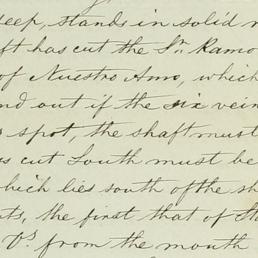 deep, stands in solid
ft has cut the Sn. Ramo
of Nuestro Amo, which
nd out if the six vein
s spot, the shaft must
es cut South must be
which lies south of the sh
ts, the first that of
Vs. from the mouth